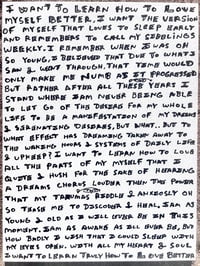 I WANT TO LEARN HOW TO LOVE
MYSELF BETTER. I WANT THE VERSION
OF MYSELF THAT LOVES TO SLEEP EARLY
AND REMEMBERS TO CALL MY SIBLINGS
WEEKLY. I REMEMBER WHEN I WAS OH
SO YOUNG, I BELIEVED THAT DUE TO WHAT I
SAW & WENT THROUGH, THAT TIME WOULD
ONLY MAKE ME NUMB AS IT PROGRESSED
BUT RATHER AFTER ALL THESE YEARS I
STAND HERE I AM NEVER BEING ABLE
TO LET GO OF THE DESIRE FOR MY WHOLE
LIFE TO BE A MANIFESTATION OF MY DREAMS
& DESIRES, BUT WHAT.. BUT TO
WHAT EFFECT HAS DREAMING TAKEN AWAY TO
THE WAKING HOURS & SYSTEMS OF DAILY LIFE
& UPKEEP? I WANT TO LEARN HOW TO LOVE
ALL THE PARTS OF MY MYSELF THAT I
& HUSH FOR THE SAKE OF HEARING
A DREAMS CHORUS LOUDER THEN THE POWER
THAT MY TRAUMAS & ANXIOUSLY ON
SO THOSE ME TO DISCOVER & HEAL. I AM AS
YOUNG & OLD AS I WILL EVER BE IN THIS
MOMENT. I AM AS AWAKE AS ILL EVER BE, BUT
HOW BADLY I WISH THAT I COULD SLEEP WITH
MY EYES OPEN. WITH ALL MY HEART & SOUL
I WANT TO LEARN TRULY HOW TO LOVE BETTER